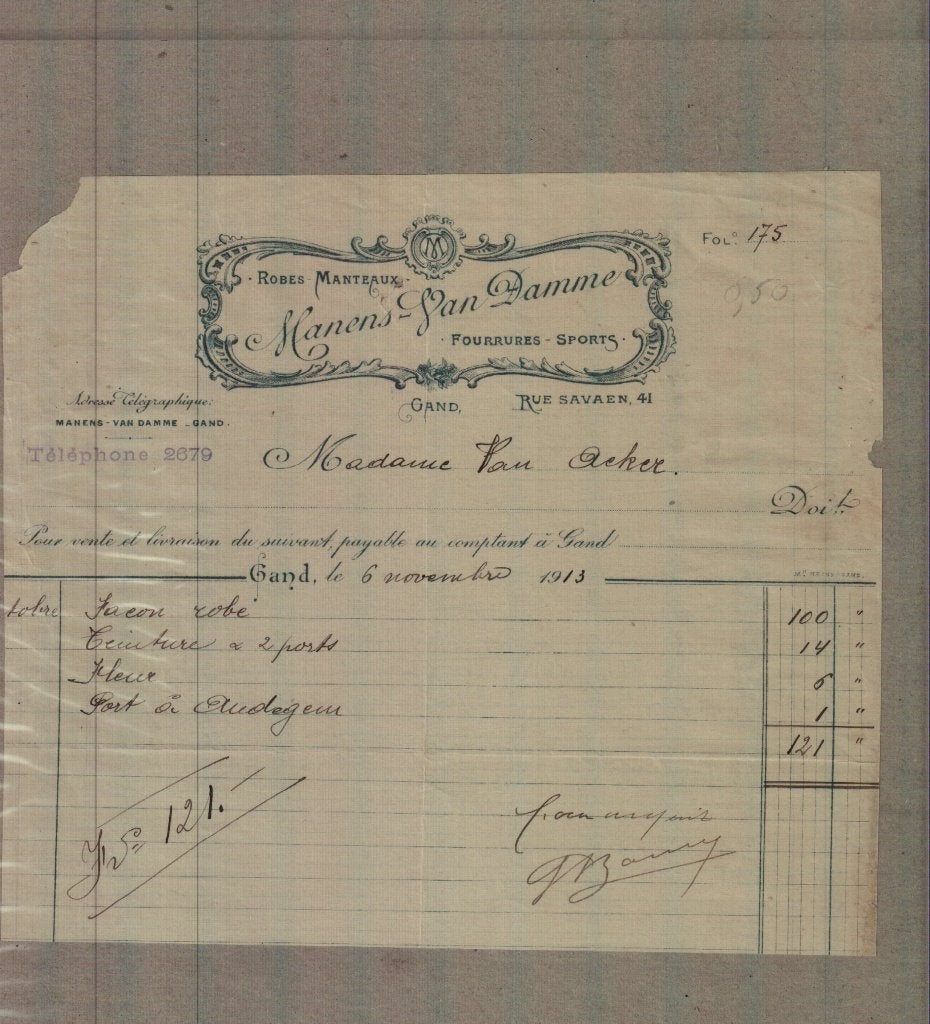 Fol.º 175
0,50
M
Robes - Manteaux
Manens-Van Damme
Fourrures - Sports
Gand, Rue Savaen, 41
Adresse Télégraphique:
MANENS-VAN DAMME - GAND.
Téléphone 2679
Madame Van Acker.
Doit
Pour vente et livraison du suivant, payable au comptant à Gand
Gand, le 6 novembre 1913
tobre Facon robe 100 "
Ceinture 2 ports 14 "
Fleur 6 "
Port à Audegem 1 "
121 "
Frs 121.
Pour acquit